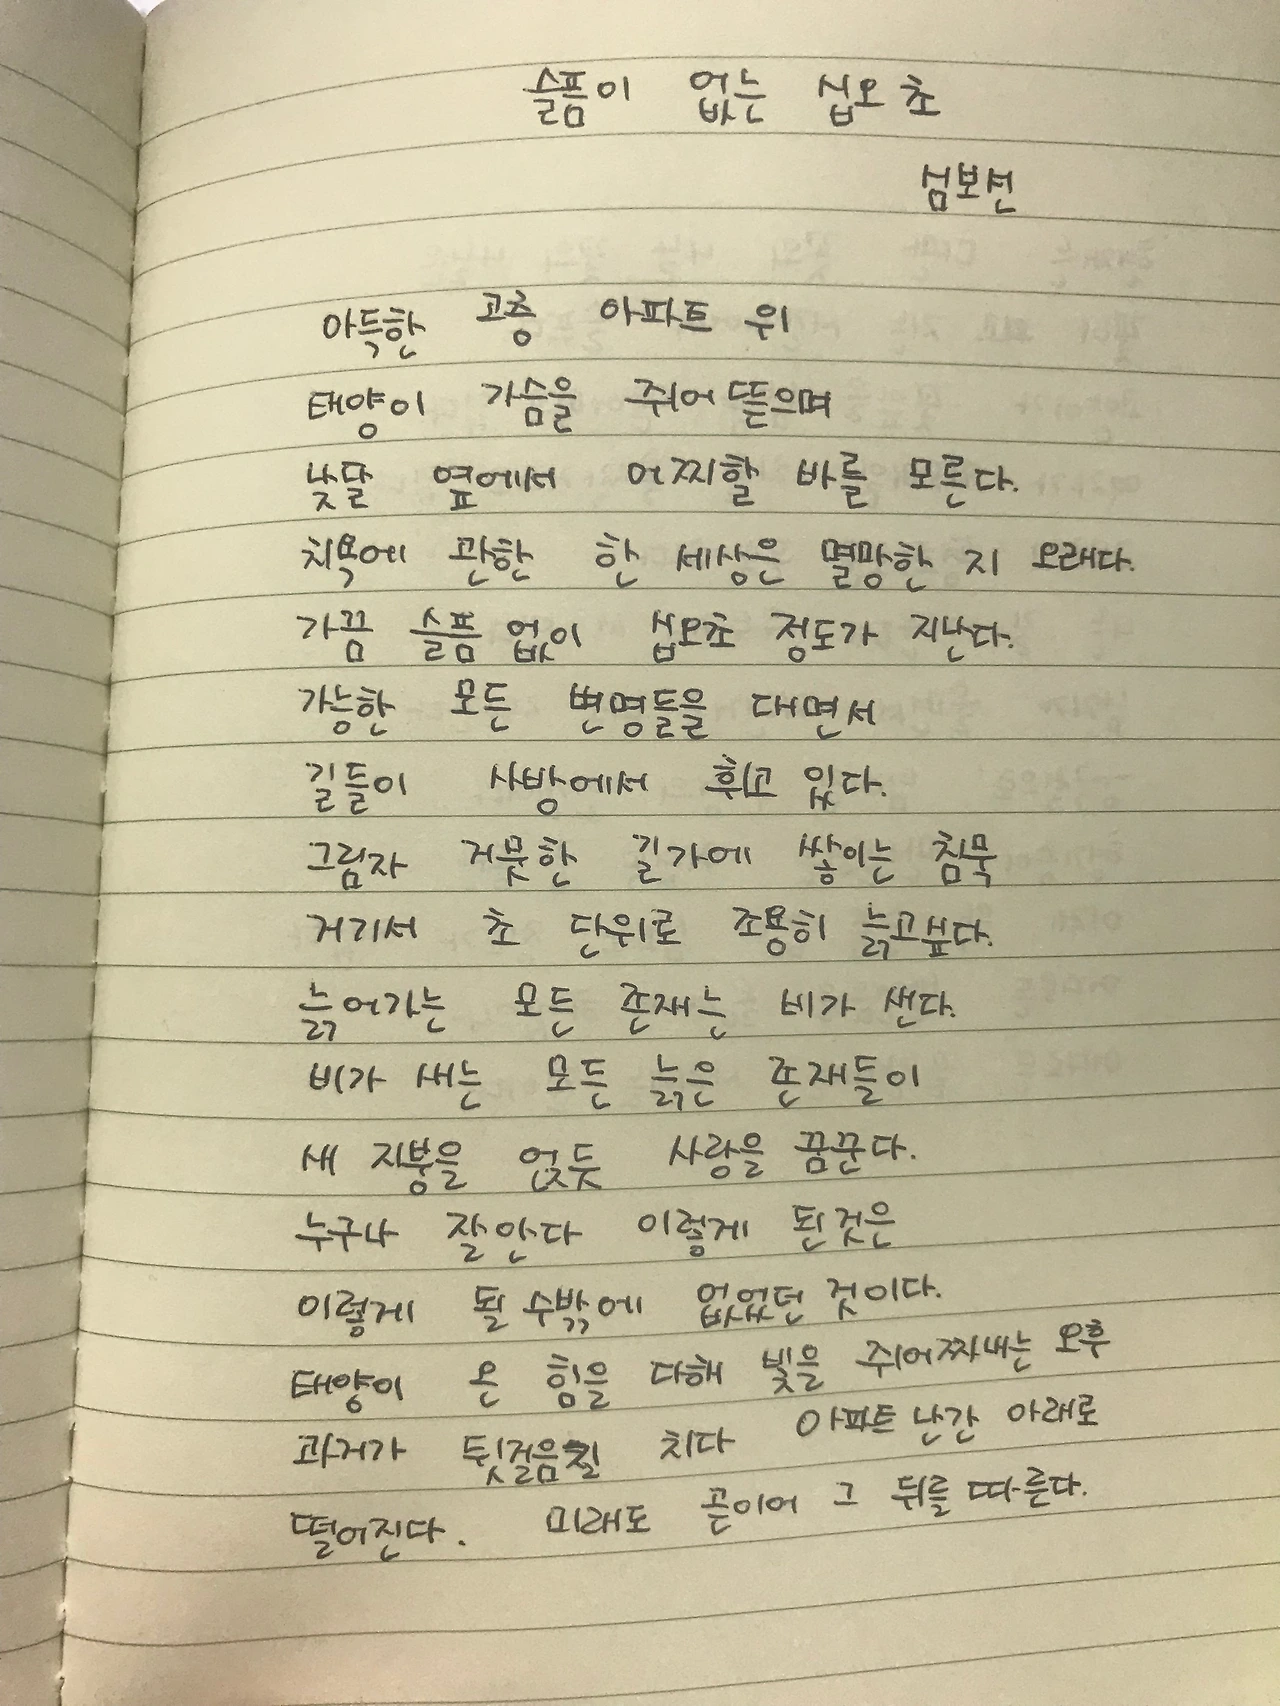 슬픔이 없는 십오 초
심보선
아득한 고층 아파트 위
태양이 가슴을 쥐어 뜯으며
낮달 옆에서 어찌할 바를 모른다.
치욕에 관한 한 세상은 멸망한 지 오래다.
가끔 슬픔 없이 십오초 정도가 지난다.
가능한 모든 변명들을 대면서
길들이 사방에서 휘고 있다.
그림자 거뭇한 길가에 쌓이는 침묵
거기서 초 단위로 조용히 늙고싶다.
늙어가는 모든 존재는 비가 샌다.
비가 새는 모든 늙은 존재들이
새 지붕을 얹듯 사랑을 꿈꾼다.
누구나 잘 안다 이렇게 된것은
이렇게 될 수밖에 없었던 것이다.
태양이 온 힘을 다해 빛을 쥐어짜내는 오후
과거가 뒷걸음질 치다 아파트 난간 아래로
떨어진다. 미래도 곧이어 그 뒤를 따른다.